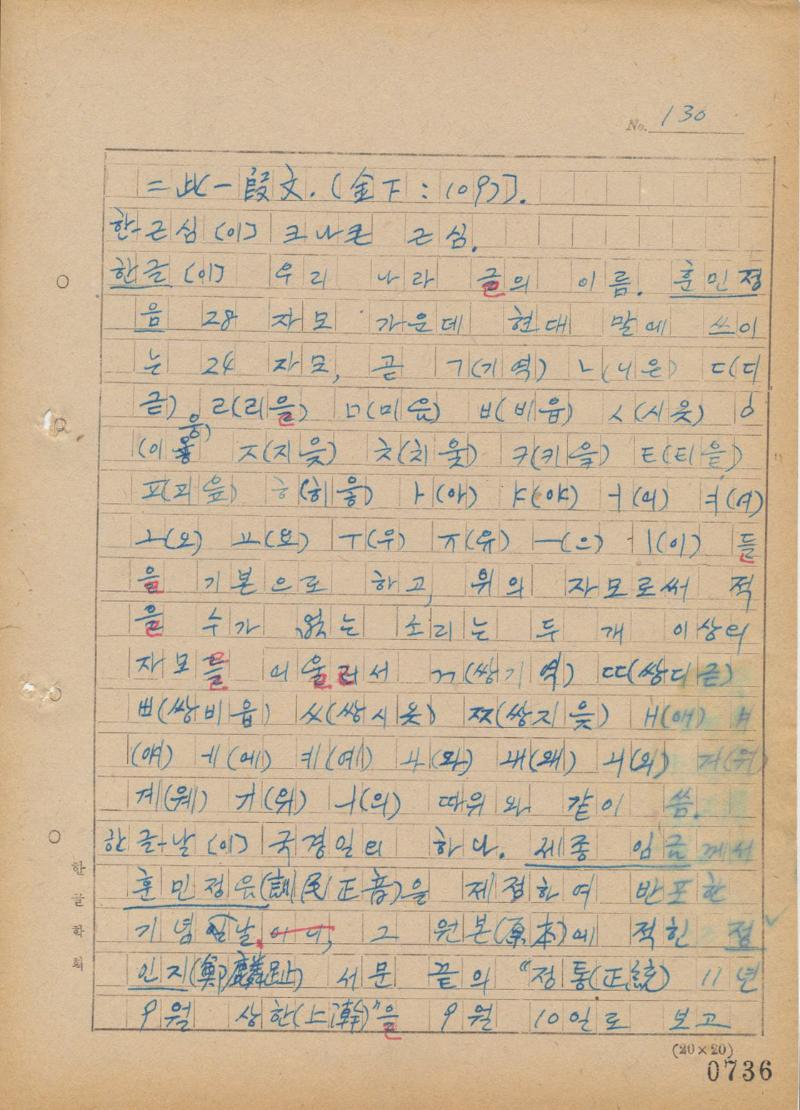 No. 130
= 此一段文. (金下 : 109)].
한-근심 (이) 크나큰 근심.
한글 (이) 우리 나라 글의 이름. 훈민정
음 28 자모 가운데 현대 말에 쓰이
는 24 자모, 곧 ㄱ(기역) ㄴ(니은) ㄷ(디
귿) ㄹ(리을) ㅁ(미음) ㅂ(비읍) ㅅ(시옷) ㅇ
(이응) ㅈ(지읒) ㅊ(치읓) ㅋ(키읔) ㅌ(티읕)
ㅍ(피읖) ㅎ(히읗) ㅏ(아) ㅑ(야) ㅓ(어) ㅕ(여)
ㅗ(오) ㅛ(요) ㅜ(우) ㅠ(유) ㅡ(으) ㅣ(이) 들
을 기본으로 하고, 위의 자모로써 적
을 수가 없는 소리는 두 개 이상의
자모를 어울러서 ㄲ(쌍기역) ㄸ(쌍디귿)
ㅃ(쌍비읍) ㅆ(쌍시옷) ㅉ(쌍지읒) ㅐ(애) ㅒ
(얘) ㅔ(에) ㅖ(예) ㅘ(와) ㅙ(왜) ㅚ(외) ㅝ(워)
ㅞ(웨) ㅟ(위) ㅢ(의) 따위와 같이 씀.
한글-날 (이) 국경일의 하나. 세종 임금께서
훈민정음(訓民正音)을 제정하여 반포한
기념날, 그 원본(原本)에 적힌 정
인지(鄭麟趾) 서문 끝의 "정통(正統) 11년
9월 상한(上澣)"을 9월 10일로 보고
(20×20)
0736
한글학회